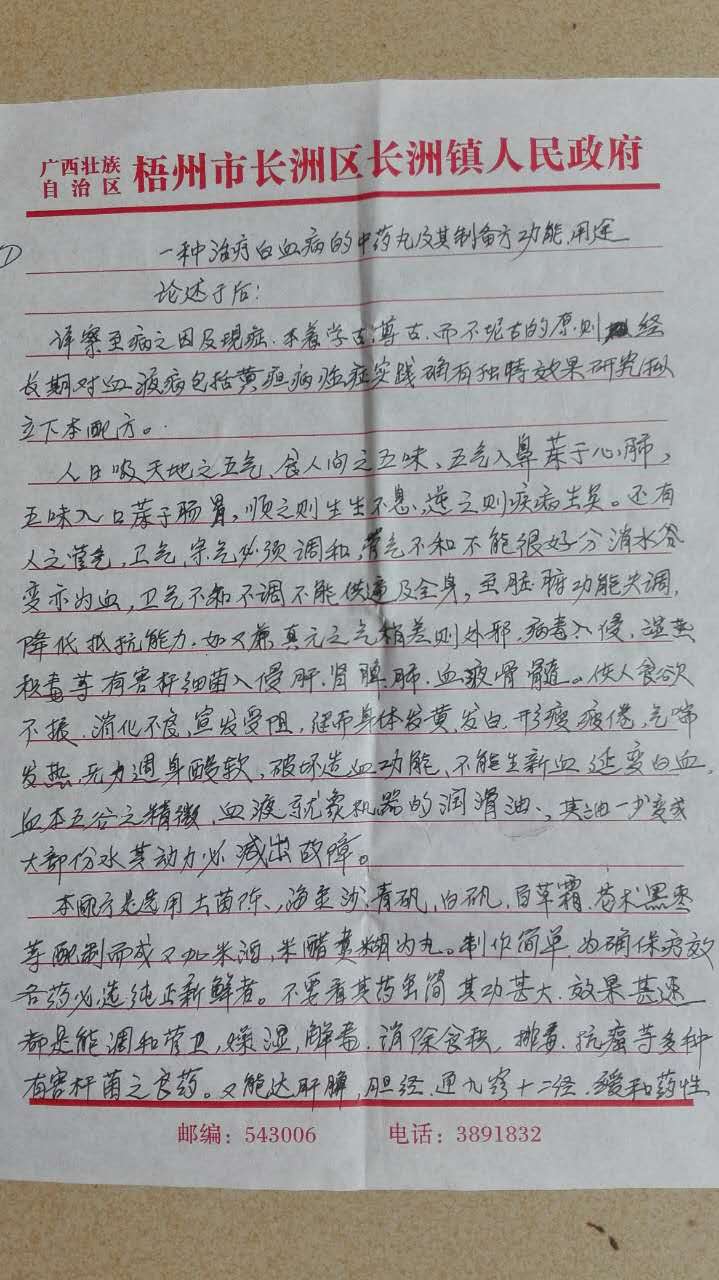 广西壮族
自治区
梧州市长洲区长洲镇人民政府
一种治疗白血病的中药丸及其制备方功能,用途
论述于后:
详察至病之因及现症.本着学古尊古.而不坭古的原则 经
长期对血液病包括黄疸病临症实践确有独特效果研究拟
立下本配方。
人日吸天地之五气、食人间之五味、五气入鼻藏于心肺,
五味入口藏于肠胃,顺之则生生不息,逆之则疾病生矣。还有
人之营气,卫气,宗气必须调和,营气不和不能很好分消水谷
变亦为血,卫气不和不调不能供遍及全身,至脏腑功能失调,
降低抵抗能力.如又兼真元之气稍差则外邪.病毒入侵,湿热
积毒等有害杆细菌入侵肝.肾脾.肺.血液骨髓。使人食欲
不振.消化不良,宣发受阻,继而身体发黄.发白.形瘦疲倦,气喘
发热,无力週身酸软、破坏造血功能、不能生新血延变白血,
血本五谷之精微,血液就象机器的润滑油、其油一少变成
大部份水其动力必减出故障。
本配方是选用土茵陈、海金沙,青矾,白矾,百草霜.苍术黑枣
等配制而成又加米酒,米醋煮糊为丸。制作简单.为确保疗效
各药必选纯正新鲜者。不要看其药虽简其功甚大.效果甚速
都是能调和营卫,燥湿,解毒.消除食积,排毒.抗瘤等多种
有害杆菌之良药。又能达肝脾,胆经.通九窍十二经.缓和药性
邮编:543006
电话:3891832